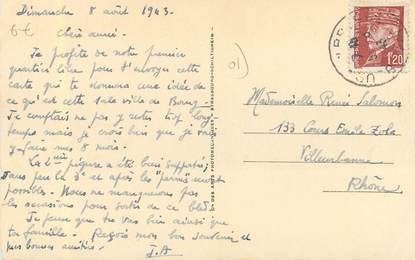 Dimanche 8 août 1943.
6€
Chère amie.
Je profite de notre premier
quartier libre pour t'envoyer cette
carte qui te donnera une idée de
ce qu'est cette sale ville de Bourg.
Je comptais ne pas y rester trop long
temps mais je crois bien que je vais
y faire mes 8 mois.
La 2ème piqure a été bien supportée,
dans peu la 3e et après les "perms" seront
possible. Nous ne manquerons pas
les occasions pour sortir de ce bled.
Je pense que tu vas bien ainsi que
ta famille. Reçois mon bon souvenir et
mes bonnes amitiés.
J.A
01
1,20
Mademoiselle Renée Salomon
133 Cours Emile Zola
Villeurbanne
Rhône